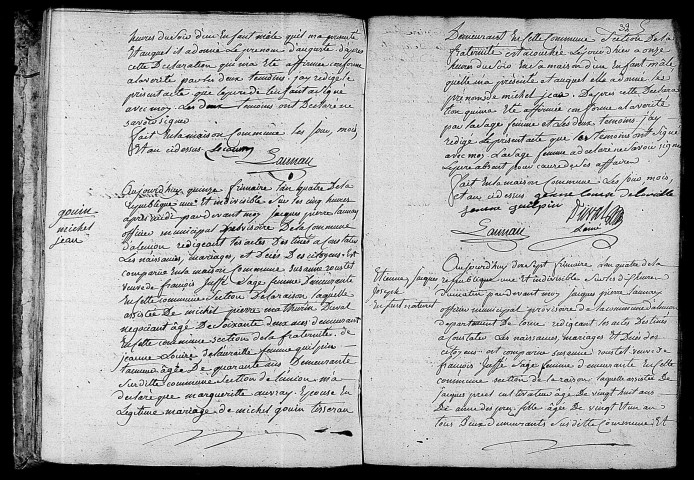 heures du soir d'un Enfant mâle qu'il m'a présenté
Et auquel il a donné Le prénom d'auguste d'après
cette Déclaration qui m'a Eté affirmée conforme
a la vérité par les deux témoins. j'ay rédigé le
présent acte que le père de l'enfant a signé
avec moy. Les deux témoins ont Déclaré ne
savoir signer
fait En la maison Commune les jour, mois
Et an ci dessus
gouin
michel
jean
Aujourd'huy quinze frimaire l'an quatre de la
République une Et indivisible Sur les cinq heures
après midi par devant moy jacques pierre
officier municipal provisoire de la commune
d'alençon rédigeant les actes Destinés a constater
Les naissances, mariages, et Décès Des citoyens. Est
comparue En la maison Commune susanne
veuve de françois Sage femme Demeurante
En cette commune Section de la raison laquelle
assistée De michel pierre mathurin Duval
negociant âgé De soixante deux ans demeurant
En cette commune section de la fraternité. de
jeanne Louise delavaille femme guilpin
âgée De quarante ans Demeurante
Sur ditte commune section de l'union. m'a
déclaré que margueritte auvray Epouse En
Légitime mariage de michel gouin tisseran
32
Demeurant En cette Commune Section de la
fraternité est accouchée Le jour d'hier a onze
heures du soir En la maison d'un Enfant mâle
quelle m'a présenté et auquel elle a donné les
prénoms de michel jean. D'après cette Déclara
tion qui m'a Eté affirmée conforme a la vérité
par la Sage femme et Les deux Témoins j'ay
rédigé Le présent acte que les témoins ont Signé
avec moy. La Sage femme a déclaré ne savoir signer
Le père absent pour cause de ses affaire
fait En la maison commune Les jour mois
et an ci dessus jeanne Louise delavaille
femme guilpin Duval
Etienne jacques
joseph
Enfant naturel
Aujourd'huy dix sept frimaire l'an quatre de la
république une Et indivisible Sur les dix heures
Du matin par devant moy jacques pierre
officier municipal provisoire de la commune d'alençon
département de L'orne rédigeant les actes Destinés
a constater Les naissances, mariages et Décès des
citoyens. est comparue susanne veuve de
françois Sage femme demeurante En cette
commune section de la raison laquelle assistée De
jacques cultivateur âgé De vingt huit ans
De anne fille âgée De vingt un an
tous Deux demeurants Sus ditte Commune, Et